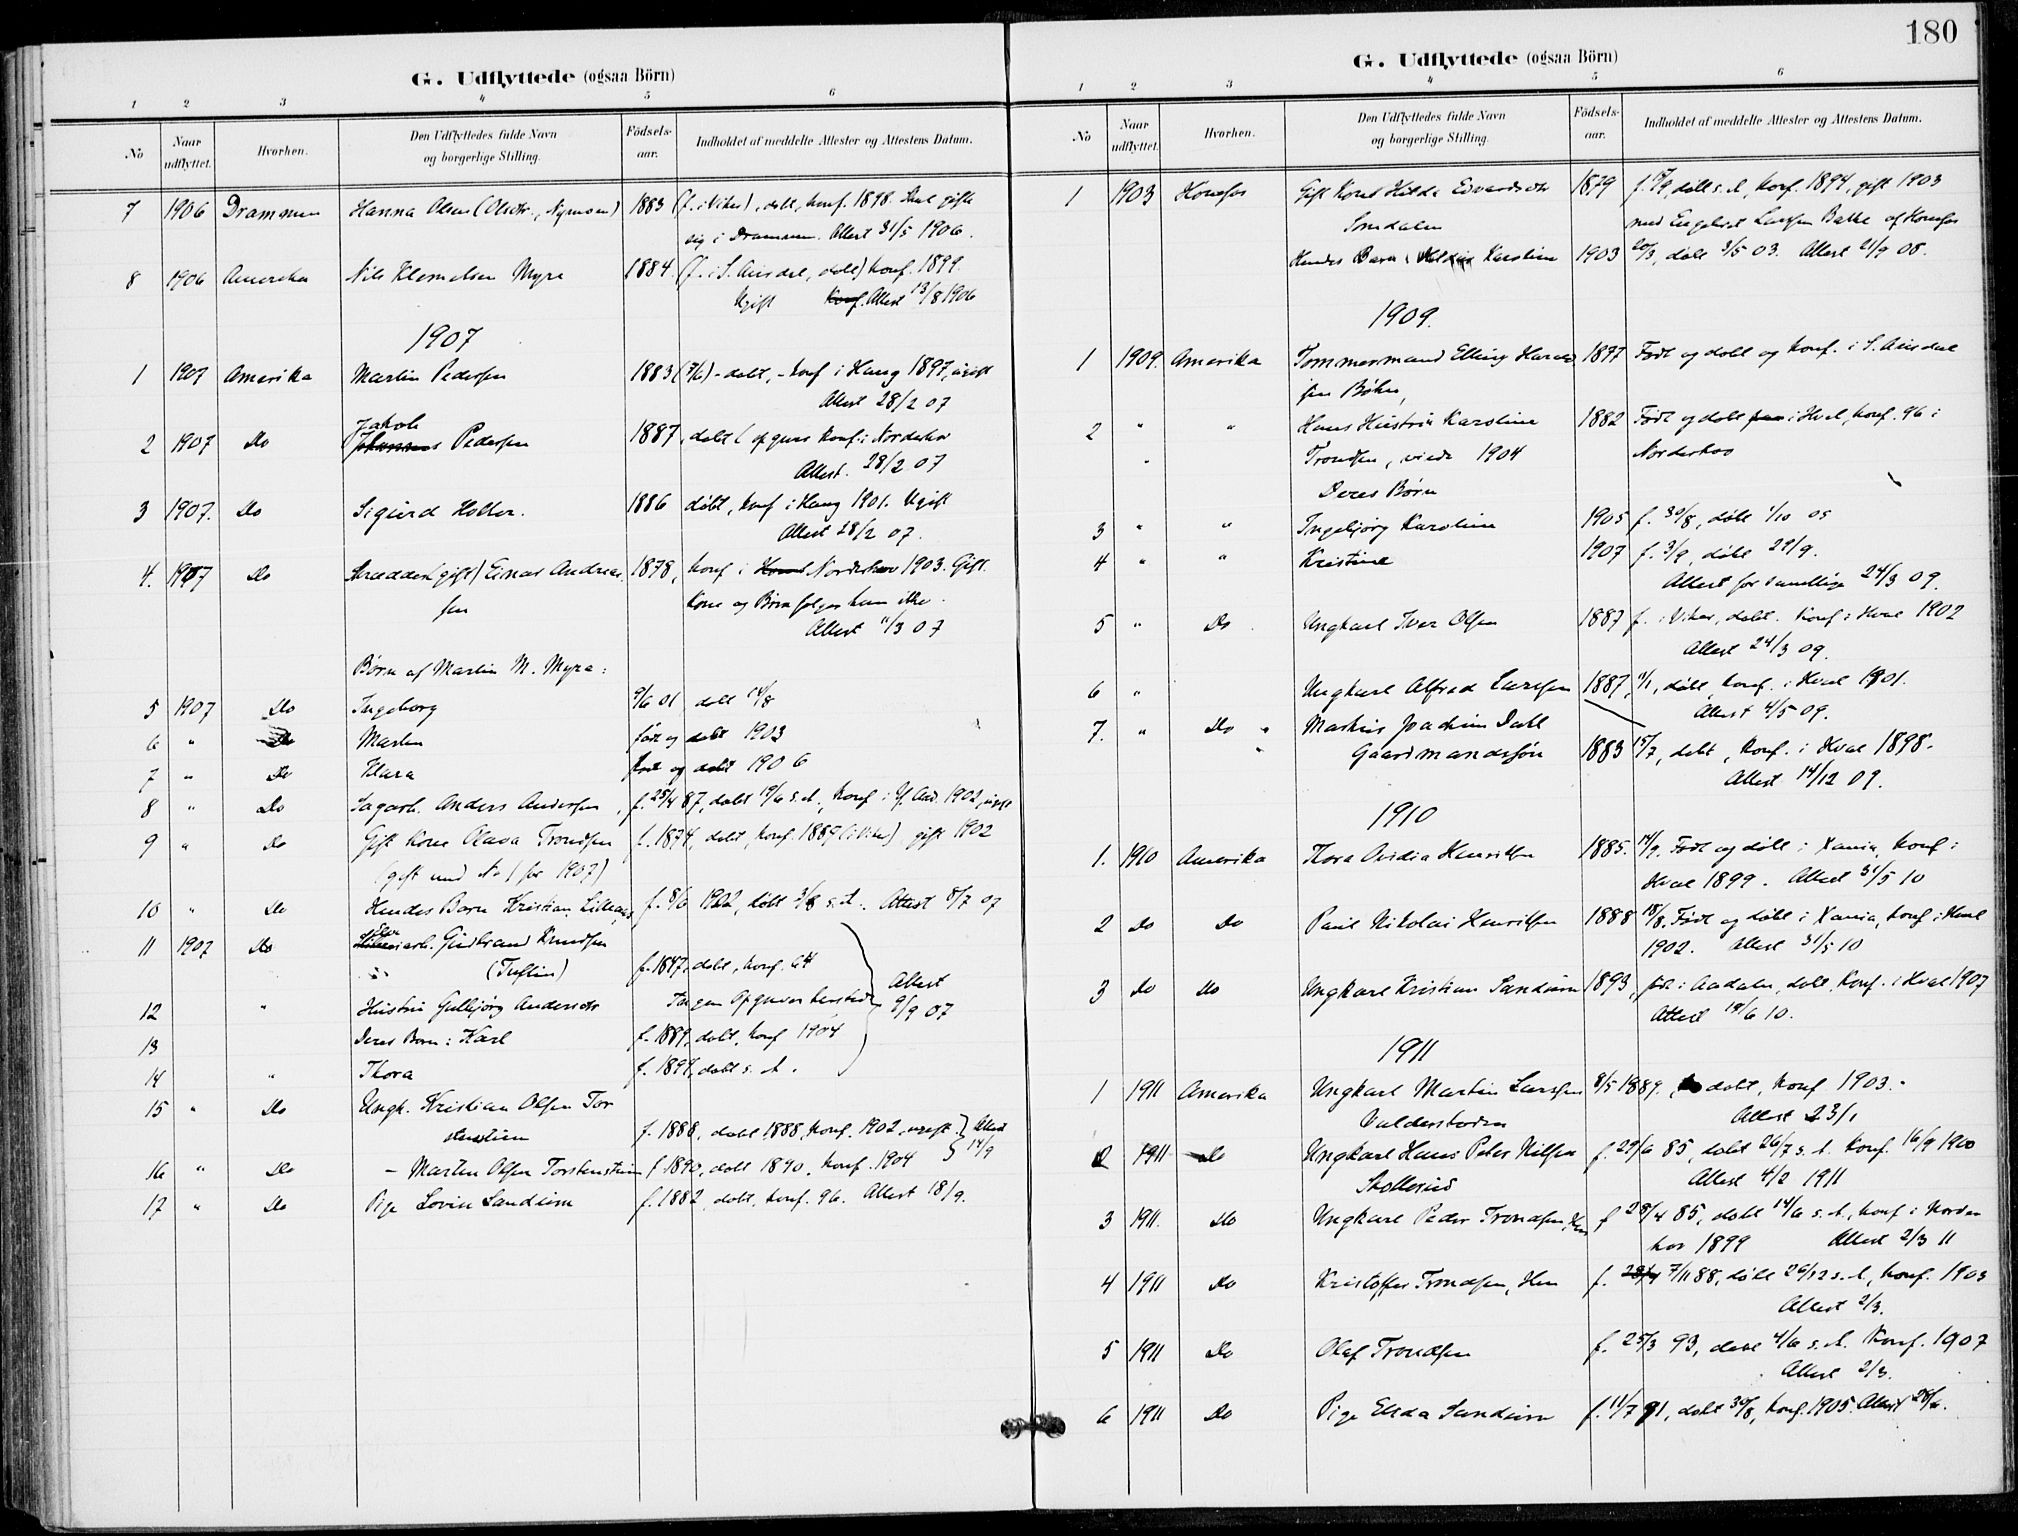 G. Udflyttede (ogsaa Börn)
1 2 3 4 5 6
No Naar udflyttet. Hvorhen. Den Udflyttedes fulde Navn og borgerlige Stilling. Födsels-aar. Indholdet af meddelte Attester og Attestens Datum.
7 1906 Drammen Hanna Olsen (Olsdtr., 1883 (f. i Viker), døbt, konf. 1898. Skal gifte
sig i Drammen. Attest 31/5 1906.
8 1906 Amerika Nils Klemetsen Myra 1884 (f. i S. Aurdal, døbt) konf. 1899.
Ugift Attest 13/8 1906
1907
1 1907 Amerika Martin Pedersen 1883 døbt, konf i Haug 1897, ugift
Attest 28/2 07
Jakob
2 1907 Do Pedersen 1887, døbt konf. i Norderhov
Attest. 28/2 07
3 1907. Do Sigurd Holter. 1886 døbt, konf i Haug 1901. Ugift
Attest 28/2 07.
4. 1907 Do Skrædder (gift) Einar Andrea 1878, konf i Norderhov 1903. Gift.
sen Kone og Børn følger ham ikke.
Attest 11/3 07
Børn af Martin M. Myra:
5 1907 Do Ingeborg 9/6 01 døbt 14/8
6 " Do Martin født og døbt 1903
7 " Do Klara født og døbt 1906
8 " Do Sagarb. Anders Andersen, f. 25/4 87, døbt 19/6 s. A., konf. i 1902, ugift
9 " Do Gift Kone Olava Trondsen f. 1874, døbt, konf. 1889 (Viker), gift 1902
(gift med No 1 for 1907)
10 " Do Hendes Barn Kristian f. 8/6 1902, døbt 3/8 s. A. Attest 8/7 07
11 1907 Do arb. Gudbrand Knudsen
f. 1847, døbt, konf. 64
12 " Hustru Gulbjørg Andersdtr Ingen Opgaver
Attest 9/9 07
13 Deres Børn: Karl f. 1889, døbt, konf 1904
14 " Thora f. 1894, døbt s. A.
15 " Do Ungk. Kristian Olsen Tor
stenstuen f. 1888, døbt 1888, konf. 1902, ugift. Attest 14/9
16 " Do - Martin Olsen Torstenstuen f. 1890, døbt 1890, konf. 1904
17 " Do Pige Lovise Sandum f. 1882, døbt, konf. 96. Attest 18/9.
180
G. Udflyttede (ogsaa Börn)
1 2 3 4 5 6
No Naar udflyttet. Hvorhen. Den Udflyttedes fulde Navn og borgerlige Stilling. Födsels-aar. Indholdet af meddelte Attester og Attestens Datum.
1 1903 Honefos Gift Kone Hilda Edvardsdtr 1879 døbt s. A, konf. 1894, gift 1903
Somdalen med Engebret Larsen Bakke af Honefos
Hendes Barn: Karoline 1903 20/3, døbt 3/5 03. Attest 21/9 08.
1909.
1 1909. Amerika Tømmermand Elling Harald 1877 Født og døbt og konf. i S. Aurdal
sen Bøhn,
2 " " Hans Hustru Karoline 1882 Født og døbt i Hval, konf. 96 i
" Trondsen, viede 1904 Norderhov
Deres Børn
3 " " Ingebjørg Karoline 1905 f. 30/8, døbt 1/10 05
4 " " Kristine 1907 f. 3/9, døbt 29/9.
Attest for samtlige 24/3 09.
5 " Do Ungkarl Iver Olsen 1887 f. i Viker, døbt. konf. i Hval 1902
Attest 24/3 09.
6 " Ungkarl Alfred Larsen 1887, døbt, konf. i Hval 1901.
Attest 4/5 09.
7. " Do " Markus Joachim Dahl
" Gaardmandssøn 1883 15/7, døbt, konf. i Hval 1898.
Attest 14/12 09.
1910
1. 1910 Amerika Thora Henriksen 1885. 14/9. Født og døbt i Xania, konf. i
Hval 1899. Attest 31/5 10
2 Do Do Paul Nikolai Henriksen 1888 18/8. Født og døbt i Xania, konf. i Hval
1902. Attest 31/5 10
3 Do Do Ungkarl Kristian Sandum 1893, født i Aadalen, døbt, konf. i Hval 1907
Attest 19/6 10.
1911
1 1911 Amerika Ungkarl Martin Larsen 8/5 1889. døbt, konf 1903.
Attest 23/1
2 1911 Do Ungkarl Hans Peter Nilsen f. 29/6 85, døbt 26/7 s. A. konf. 16/9 1900
Skollerud Attest 4/2 1911
3 1911. Do Ungkarl Peder Trondsen, Hen f 28/4 85, døbt 14/6 s. A., konf i Norder
hov 1899 Attest 2/3 11
4 1911 Do Kristoffer Trondsen, Hen f. 7/11 88, døbt 29/12 s. A., konf. 1903
Attest 2/3.
5 1911 Do Olaf Trondsen f. 25/3 93, døbt 4/6 s. A. konf. 1907
Attest 2/3.
6 1911 Do Pige Elida Sandum f. 11/7 91, døbt 30/8, konf. 1905. Attest 28/6.